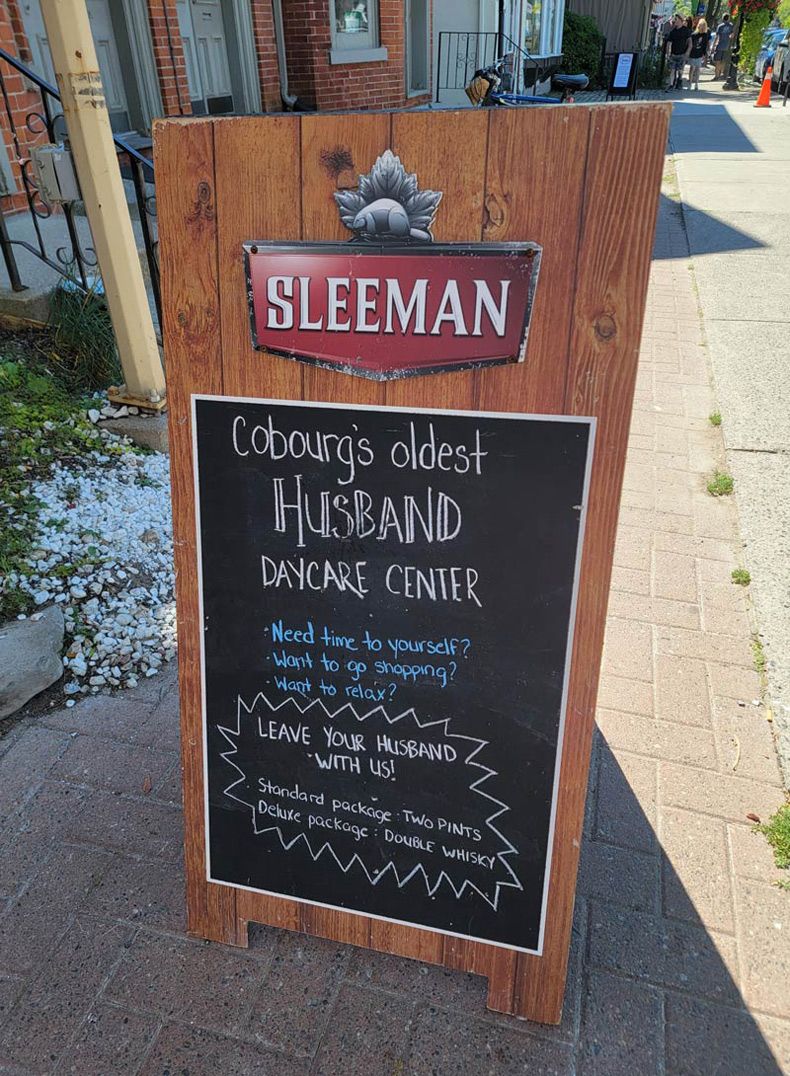 SLEEMAN
Cobourg's oldest
HUSBAND
DAYCARE CENTER
·Need time to yourself?
·Want to go shopping?
·Want to relax?
LEAVE YOUR HUSBAND
WITH US!
·Standard package: TWO PINTS
·Deluxe package: DOUBLE WHISKY